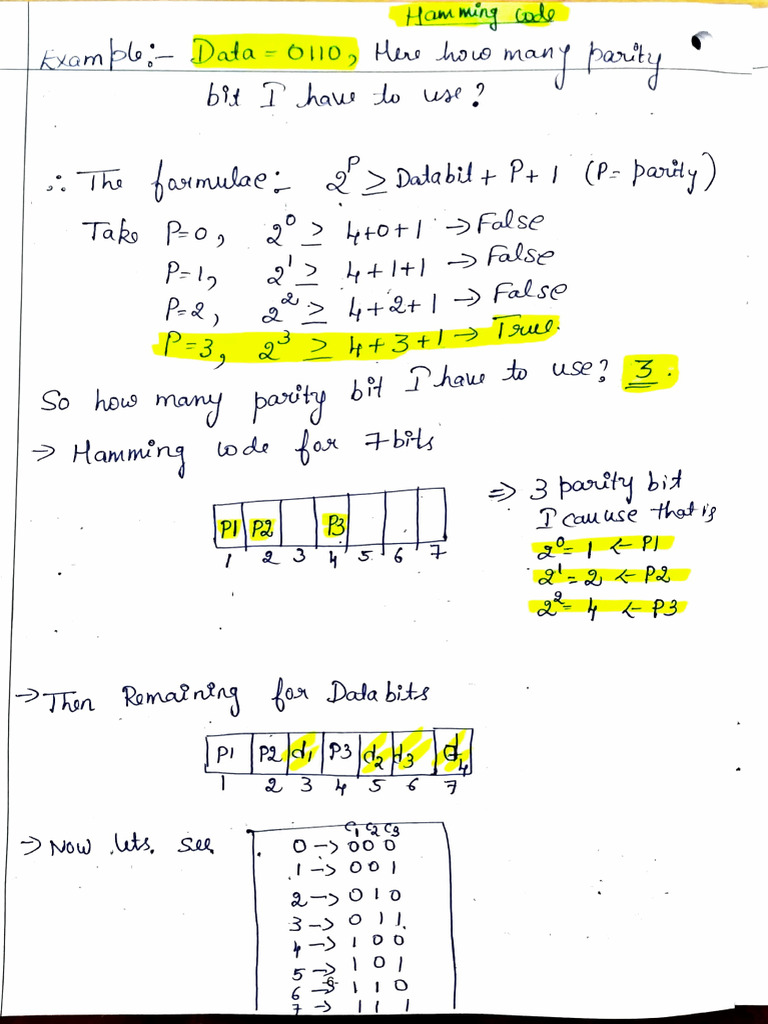 Hamming code
Example:- Data = 0110, Here how many parity
bit I have to use?
∴ The formulae:- 2^P ≥ Databit + P + 1 (P = parity)
Take P=0, 2^0 ≥ 4+0+1 → False
P=1, 2^1 ≥ 4+1+1 → False
P=2, 2^2 ≥ 4+2+1 → False
P=3, 2^3 ≥ 4+3+1 → True.
So how many parity bit I have to use? 3.
→ Hamming code for 7bits
P1 P2 P3
1 2 3 4 5 6 7
⇒ 3 parity bit
I can use that is
2^0 = 1 ← P1
2^1 = 2 ← P2
2^2 = 4 ← P3
→ Then Remaining for Databits
P1 P2 d1 P3 d2 d3 d4
1 2 3 4 5 6 7
→ Now lets. see
C1 C2 C3
0 → 0 0 0
1 → 0 0 1
2 → 0 1 0
3 → 0 1 1
4 → 1 0 0
5 → 1 0 1
6 → 1 1 0
7 → 1 1 1